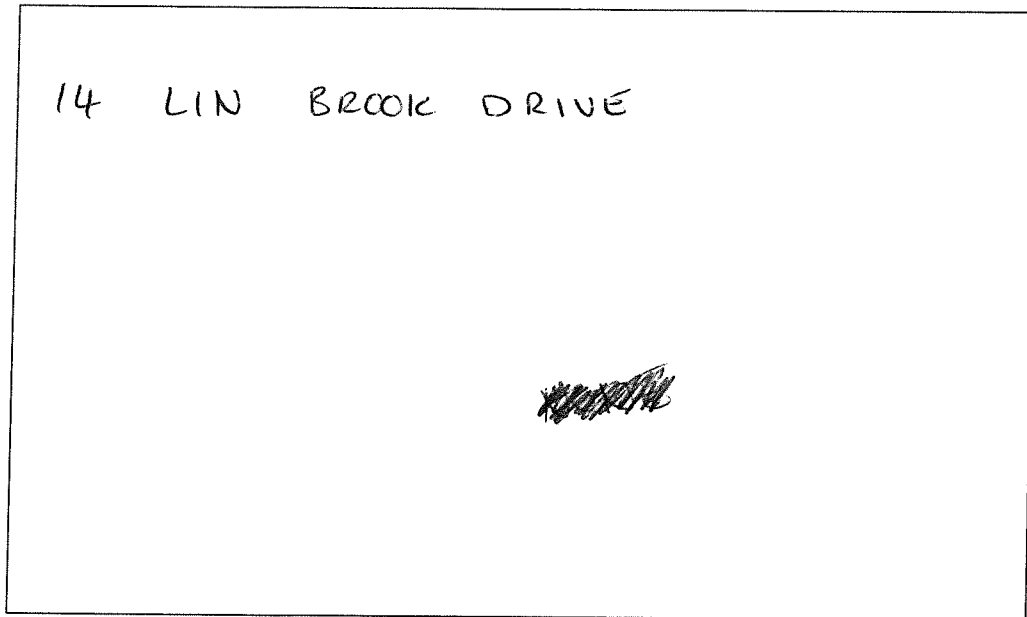 14 LIN BROOK DRIVE